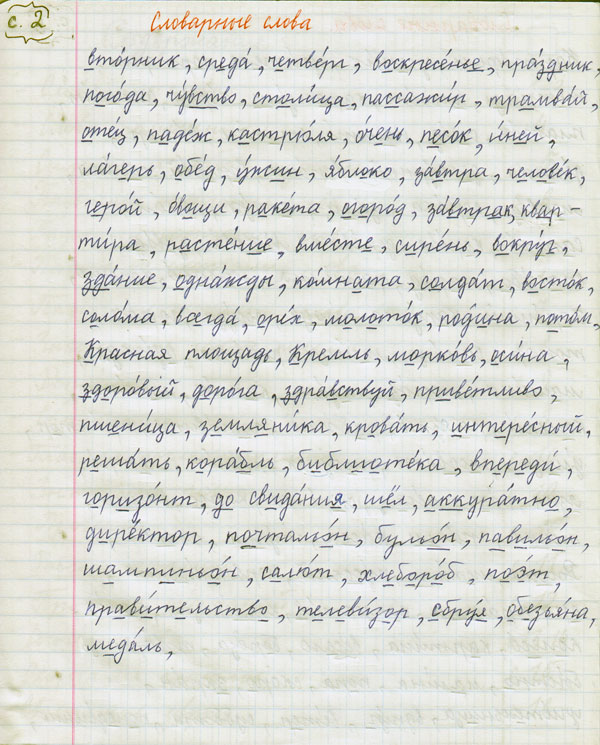 с. 2
Словарные слова
вто́рник, среда́, четве́рг, воскресе́нье, пра́здник,
пого́да, чу́вство, столи́ца, пассажи́р, трамва́й,
оте́ц, паде́ж, кастрю́ля, о́чень, песо́к, и́ней,
ла́герь, обе́д, у́жин, я́блоко, за́втра, челове́к,
геро́й, о́вощи, раке́та, огоро́д, за́втрак, квар-
ти́ра, расте́ние, вме́сте, сире́нь, вокру́г,
зда́ние, одна́жды, ко́мната, солда́т, восто́к,
соло́ма, всегда́, оре́х, молото́к, ро́дина, пото́м,
Красная площадь, Кремль, морко́вь, оси́на,
здоро́вый, доро́га, здра́вствуй, приве́тливо,
пшени́ца, земляни́ка, крова́ть, интере́сный,
реша́ть, кора́бль, библиоте́ка, впереди́,
горизо́нт, до свида́ния, шёл, аккура́тно,
дире́ктор, почтальо́н, бульо́н, павильо́н,
шампиньо́н, салю́т, хлеборо́б, поэ́т,
прави́тельство, телеви́зор, сбру́я, обезья́на,
меда́ль,